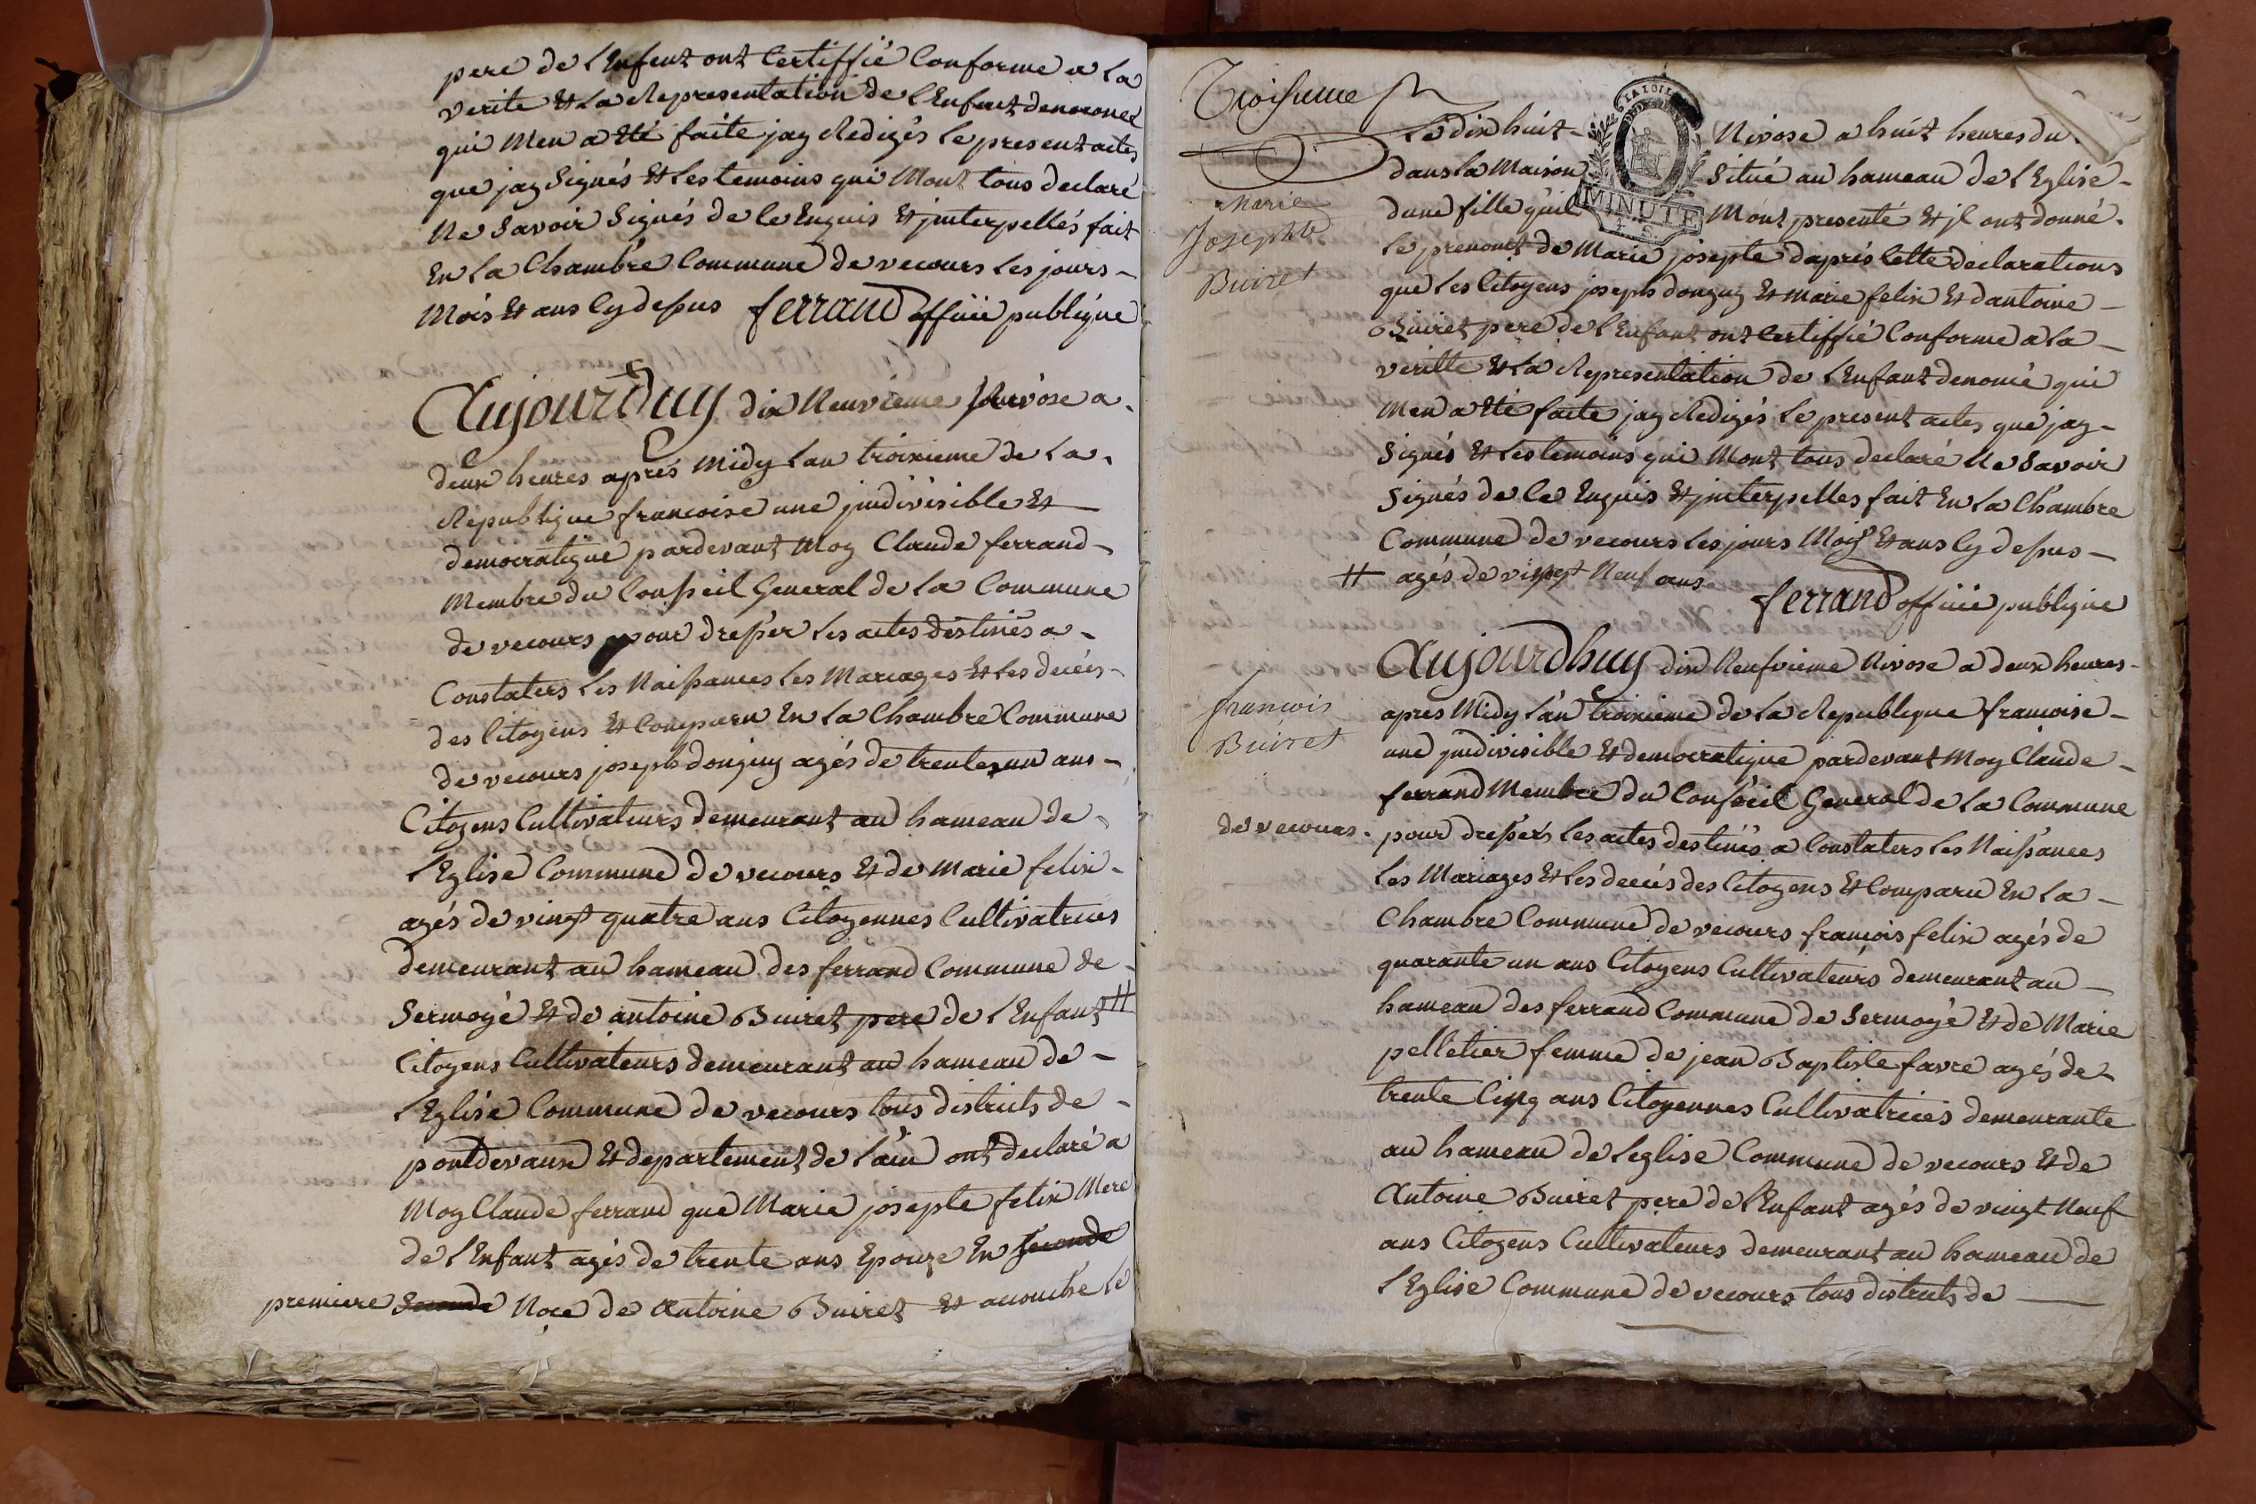 pere de l'Enfent ont Certiffié Conforme a la
verite Et la Representation de l'Enfant denonmé
qui Men a Eté faite jay Redigés le present actes
que jay Signés Et les temoins qui Mont tous declaré
Ne Savoir Signés de Ce Enquis Et jnterpellés fait
En la Chambre Commune de vecours les jours -
Mois Et ans Cy dessus ferrand officie publique
Aujourduy dix Neuvieme Nivose a -
deux heures aprés Midy lan troixieme de La -
Republique francoise une jndivisible Et
democratique pardevant Moy Claude ferrand -
Membre du Conseil General de la Commune
de vecours pour dresser les actes destinés a -
Constaters les Naissances les Mariages Et les decés -
des Citoyens Et Comparu En la Chambre Commune
de vecours joseph donguy agés de trente un ans -
Citoyens Cultivateurs demeurant au hameau de -
l'Eglise Commune de vecours Et de Marie felix -
agés de vingt quatre ans Citoyennes Cultivatrices
demeurant au hameau des ferrand Commune de -
Sermoyé Et de antoine Buiret pere de l'Enfant #
Citoyens Cultivateurs demeurant au hameau de -
l'Eglise Commune de vecours tous districts de -
pontdevaux Et departement de l'ain ont declaré a
Moy Claude ferrand que Marie josepte felix Mere
de l'Enfant agés de trente ans Epouze En Seconde
premiere Seconde Noce de Antoine Buiret Et acouché le
Troisieme
le dix huit - Nivose a huit heures du
dans la Maison Situé au hameau de l'Eglise -
dune fille quil Mont presenté Et jl ont donné -
le prenomt de Marie josepte daprés Cette declarations
que les Citoyens joseph donguy Et marie felix Et dantoine -
Buiret pere de l'Enfant ont Certiffié Conforme a la -
veritte Et la Representation de l'Enfant denomé qui
Men a Eté faite jay Redigés le present actes que jay -
Signés Et les temoins qui Mont tous declaré Ne Savoir
Signés de Ce Enquis Et jnterpelles fait En la Chambre
Commune de vecours les jours Mois Et ans Cy dessus -
# agés de vingt Neuf ans
ferrand officie publique
Marie
Josephte
Buiret
LA LOI
MINUTE
Aujourdhuy dix Neufvieme Nivose a deux heures -
apres Midy l'an troixieme de la Republique francoise -
une jndivisible Et democratique pardevant Moy Claude -
ferrand Membre du Conseil General de la Commune
de vecours - pour dressers les actes destinés a Constaters les Naissances
les Mariages Et les decés des Citoyens Et Comparu En la -
Chambre Commune de vecours francois felix agés de
quarante un ans Citoyens Cultivateurs demeurant au -
hameau des ferrand Commune de Sermoyé Et de Marie
pelletier femme de jean Baptiste favre agés de
trente Cinq ans Citoyennes Cultivatrices demeurante
au hameau de leglise Commune de vecours Et de
Antoine Buiret pere de l'Enfant agés de vingt Neuf
ans Citoyens Cultivateurs demeurant au hameau de
l'Eglise Commune de vecours tous districts de
francois
Buiret